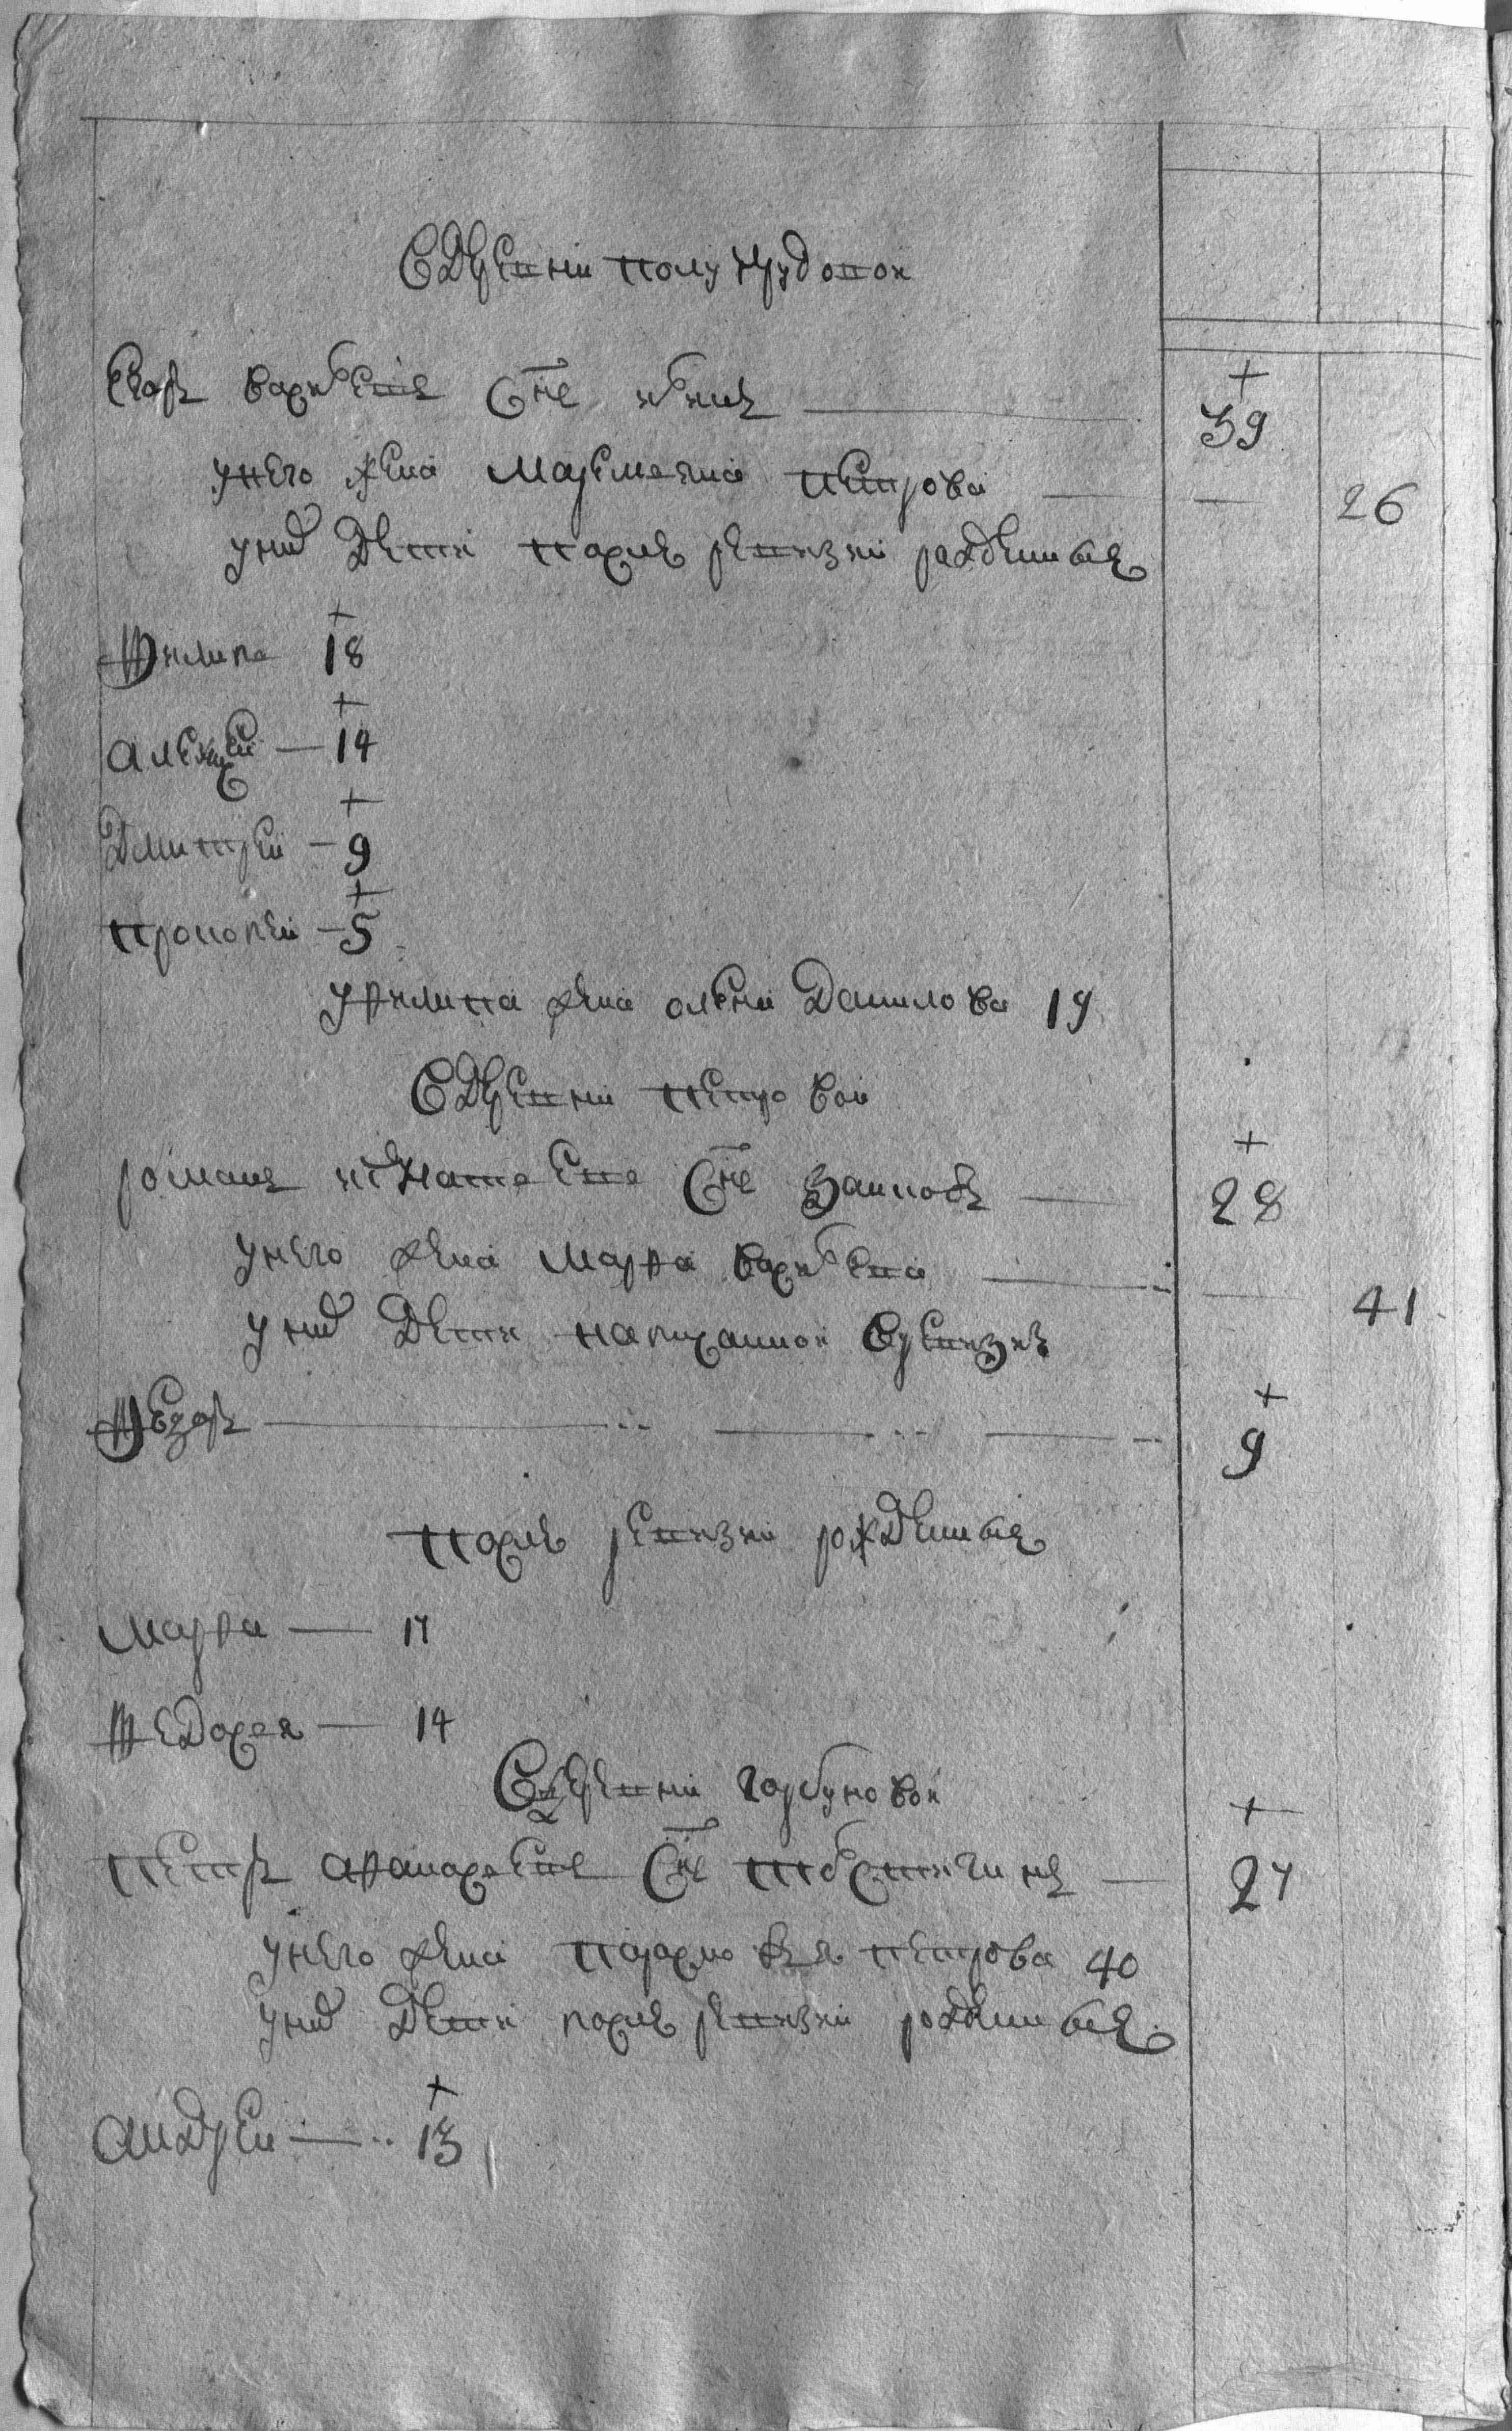 Здревни полу
Егоръ Василевъ Снъ +
39
У него жена Маремьяна Петрова 26
У них дети после ревизии рожденные
Филипъ + 18
Алексей + 14
Дмитрей + 9
Прокопей + 5
У Филипа жена Алена Данилова 19
Здревни Петровой
Романъ Игнатьевъ Снъ +
28
У него жена Марфа Васильева 41
У них дети написанной в ревизие
Федоръ +
9
После ревизии рожденные
Марфа 17
Федосья 14
Здревни Горбуновой
Петръ Афанасьевъ Снъ +
27
У него жена Парасковья Петрова 40
У них дети после ревизии рожденные
Андрей + 13